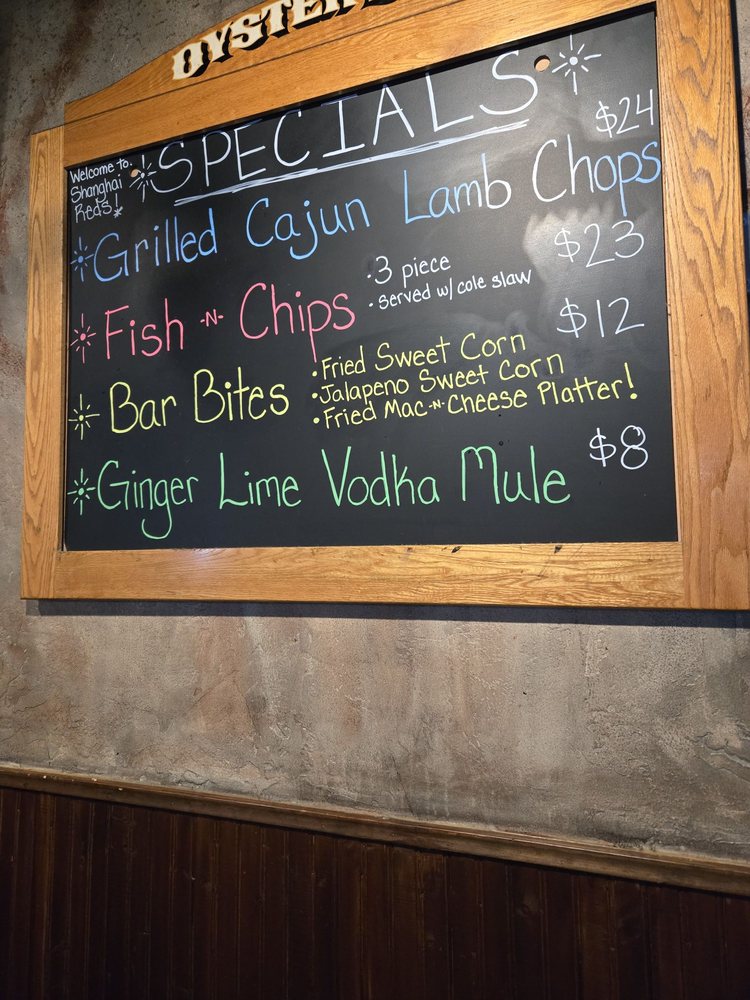 OYSTER
Welcome to
Shanghai
Reds!
SPECIALS
$24
Grilled Cajun Lamb Chops
$23
Fish -N- Chips
• 3 piece
• served w/ cole slaw
$12
Bar Bites
• Fried Sweet Corn
• Jalapeno Sweet Corn
• Fried Mac -N- Cheese Platter!
$8
Ginger Lime Vodka Mule